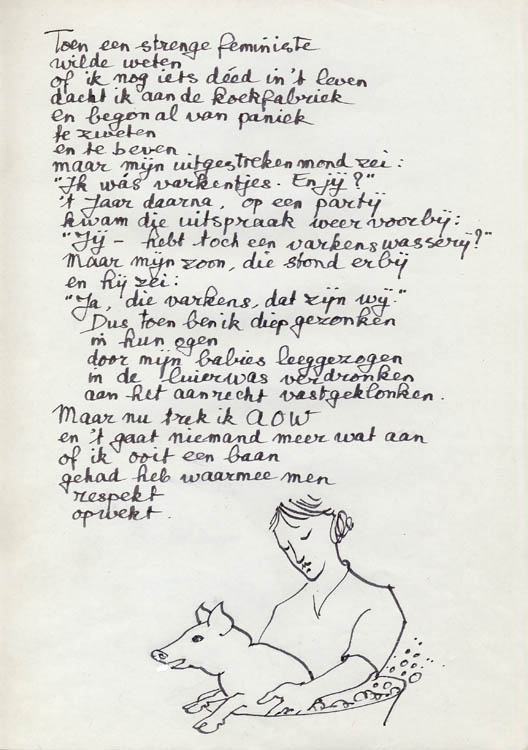 Toen een strenge feministe
wilde weten
of ik nog iets déed in 't leven
dacht ik aan de koekfabriek
en begon al van paniek
te zweten
en te beven
maar mijn uitgestreken mond zei:
"Ik wás varkentjes. En jij?"
't Jaar daarna, op een partij
kwam die uitspraak weer voorbij:
"Jij - hebt toch een varkenswasserij?"
Maar mijn zoon, die stond erbij
en hij zei:
"Ja, die varkens, dat zijn wij."
Dus toen ben ik diep gezonken
in hun ogen
door mijn babies leeggezogen
in de luierwas verdronken
aan het aanrecht vastgeklonken.
Maar nu trek ik AOW
en 't gaat niemand meer wat aan
of ik ooit een baan
gehad heb waarmee men
respekt
opwekt.